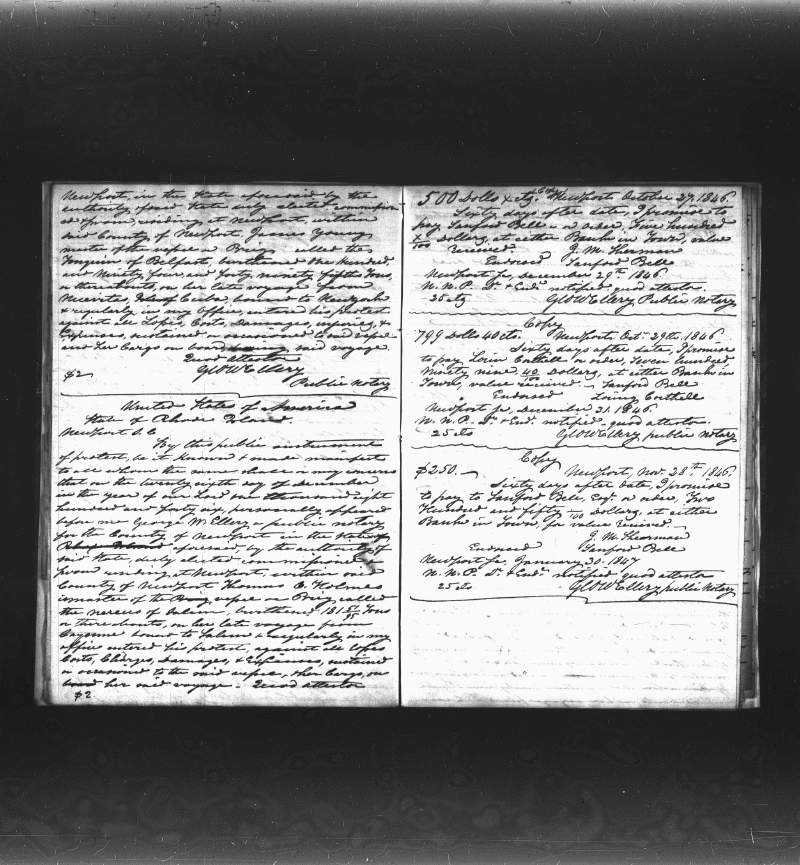 Newport, in the State aforesaid by the
authority of said State duly elected commission
ed & sworn residing at Newport, within
said County of Newport James Young
master of the aforesd Brig called the
Tonquin of Belfast, burthened One hundred
and Ninety four and forty ninety fifths Tons,
or thereabouts, on her late voyage from
Isle of Cuba, bound to New York
& regularly in my Office, entered his protest
against all Losses, Costs, Damages, injuries, &
Expenses, sustained or occasioned to said
and her Cargo on board during said voyage.
Quod Attestor
Geo W Ellery
$2 Public Notary
United States of America
State of Rhode Island.
Newport S.C.
By this public instrument
of protest, be it known & made manifest
to all whom the same does or may concern
that on the twenty sixth day of December
in the year of our Lord one thousand eight
hundred and forty six, personally appeared
before me George W. Ellery a public notary
for the County of Newport in the State of
Rhode Island aforesaid, by the authority of
said State, duly elected commissioned &
sworn residing at Newport, within said
County of Newport Thomas C. Holmes
master of the Brig called
the Nereus of Salem, burthened 181 51/95 Tons
or thereabouts, on her late voyage from
Cayenne bound to Salem & regularly in my
office entered his protest, against all Losses
Costs, Charges, Damages, & Expenses, sustained
or occasioned to the said & her Cargo, on
board her said voyage. Quod attestor
$2
500 Dolls & ctg. Copy Newport October 27. 1846.
Sixty days after date, I promise to
pay Sanford Bell or order, Five hundred
& x/100 Dollars, at either Bank in Town, value
received. J. M. Shearman
Endorsed Sanford Bell
Newport Je, December 29th 1846
N. N. P. Dr & Endr notified quod attestor
25 ctg Geo W Ellery Public Notary
Copy
799 Dolls 40 cts. Newport Oct. 29th 1846
Sixty days after date, I promise
to pay, Loring Cothell or order, Seven hundred
Ninety nine 40/100 Dollars, at either Bank in
Town, value received. Sanford Bell
Endorsed Loring Cothell
Newport Je, December 31. 1846.
N. N. P. Dr & Endr notified quod attestor.
25 cts Geo W Ellery public notary
Copy
$250. Newport, Nov. 28th 1846.
Sixty days after date, I promise
to pay to Sanford Bell, Esq. or order, Two
Hundred and fifty /100 Dollars, at either
Bank in Town for value received.
J. M. Shearman
Endorsed Sanford Bell
Newport Je January 30. 1847
N. N. P. Dr & Endr notified quod attestor
25 cts Geo W Ellery public Notary